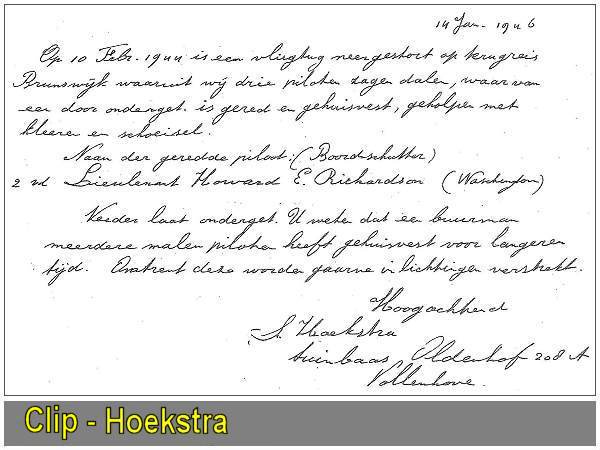 14 Jan. 1946
Op 10 Febr. 1944 is een vliegtug neergestort op terugreis
Brunswijk waaruit wij drie piloten zagen dalen, waarvan
een door onderget. is gered en gehuisvest, geholpen met
kleeren en schoeisel.
Naam der geredde piloot: (Boordschutter)
2nd Lieutenant Howard E. Richardson (Washington)
Verder laat onderget. U weten dat een buurman
meerdere malen piloten heeft gehuisvest voor langeren
tijd. deze worden gaarne inlichtingen verstrekt.
Hoogachtend
S. Hoekstra
tuinbaas Oldenhof 208 A
Vollenhove.
Clip - Hoekstra